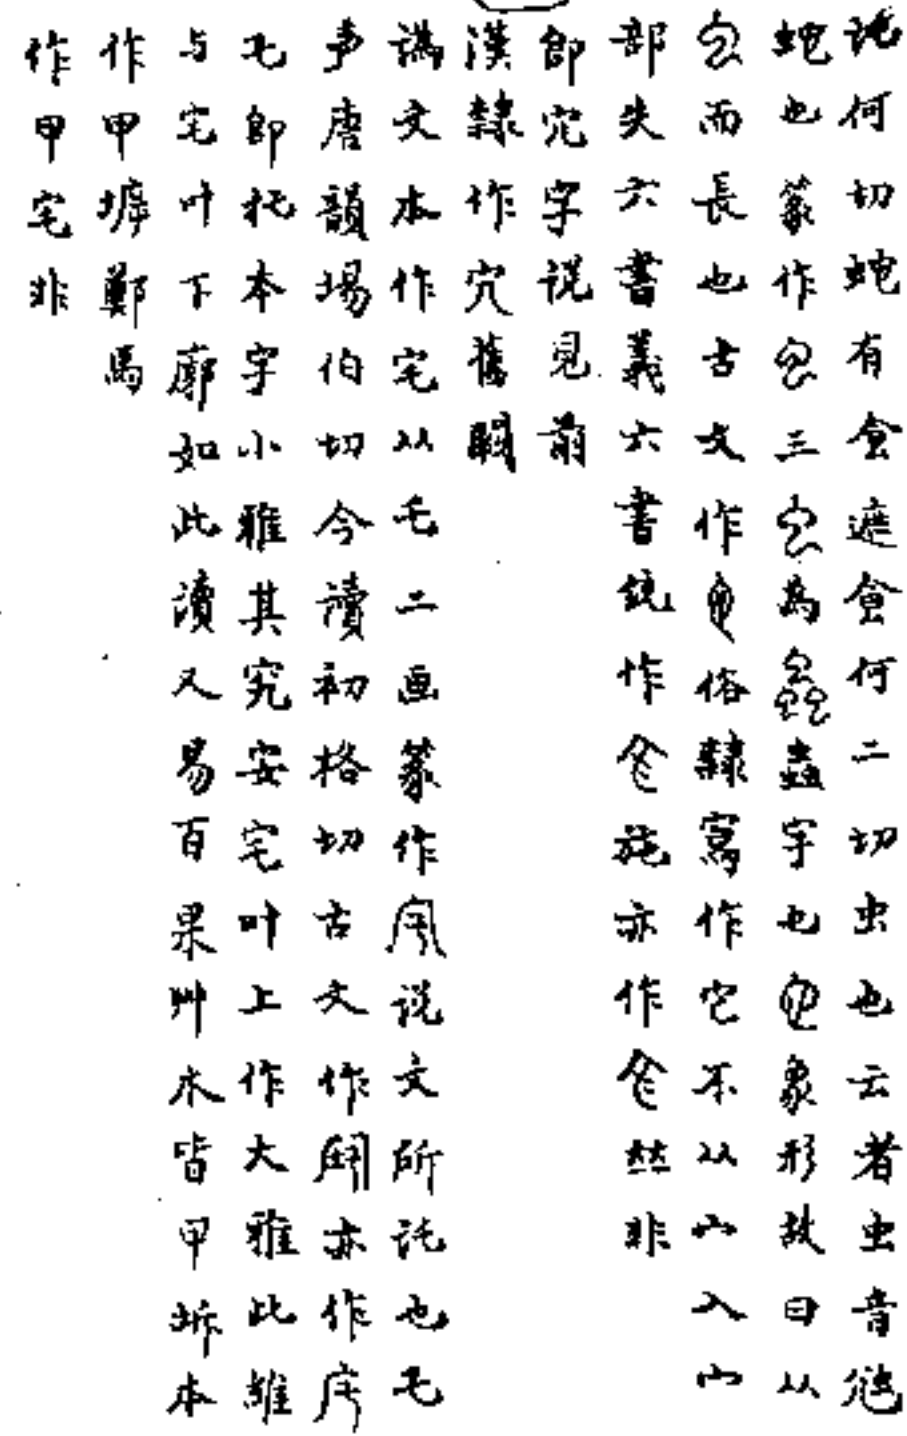 託何切蛇有食遮食何二切虫也云者虫音虺
蛇也篆作三為蟲字也象形故曰从
而長也古文作俗隸寫作它不从宀入宀
部失六書義六書統作施亦作並非
即穴字说見前
漢隸作穴舊闕
譌文本作宅从乇二画篆作说文所託也乇
声唐韻場伯切今讀初格切古文作亦作
乇即托本字小雅其究安宅叶上作大雅此維
与宅叶下廓如此讀又易百果艸木皆甲坼本
作甲㙤鄭馬
作甲宅非